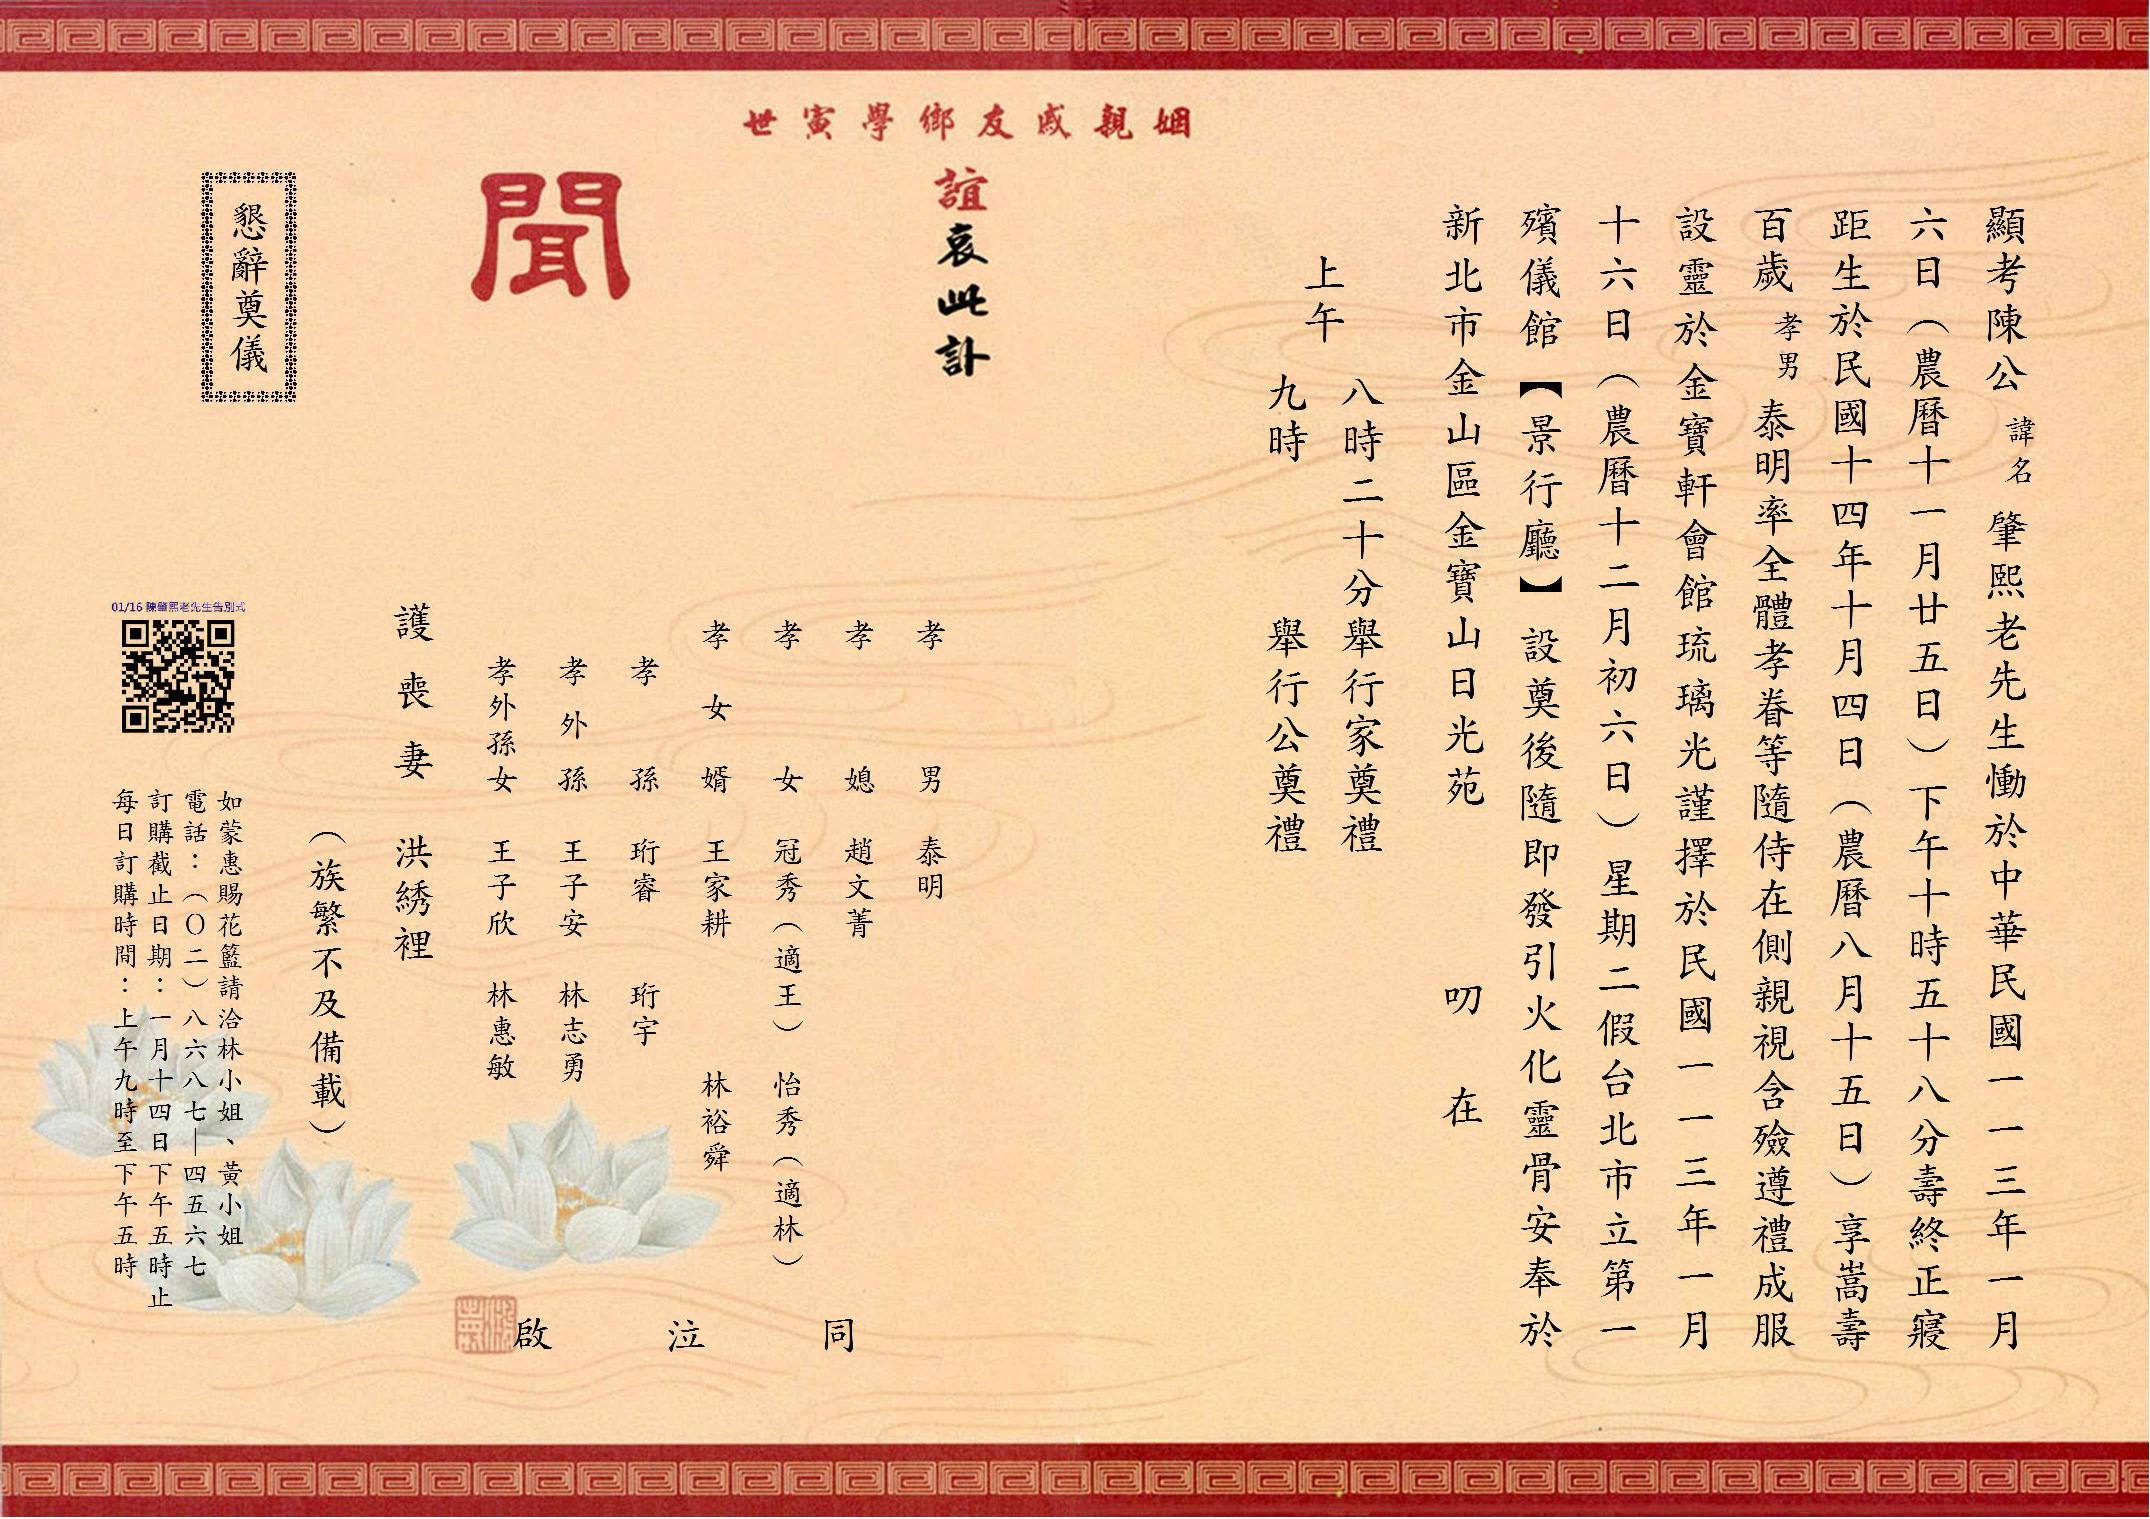 顯考陳公諱名肇熙老先生慟於中華民國一一三年一月
六日（農曆十一月廿五日）下午十時五十八分壽終正寢
距生於民國十四年十月四日（農曆八月十五日）享嵩壽
百歲孝男泰明率全體孝眷等隨侍在側親視含殮遵禮成服
設靈於金寶軒會館琉璃光謹擇於民國一一三年一月
十六日（農曆十二月初六日）星期二假台北市立第一
殯儀館【景行廳】設奠後隨即發引火化靈骨安奉於
新北市金山區金寶山日光苑 叨在
上午
八時二十分舉行家奠禮
九時 舉行公奠禮
姻親戚友鄉學寅世
誼哀此訃
聞
孝男 泰明
孝媳 趙文菁
孝女 冠秀（適王） 怡秀（適林）
孝女婿 王家耕 林裕舜
孝孫 珩睿 珩宇
孝外孫 王子安 林志勇
孝外孫女 王子欣 林惠敏
護喪妻 洪綉裡
（族繁不及備載）
同泣啟
懇辭奠儀
01/16 陳肇熙老先生告別式
如蒙惠賜花籃請洽林小姐、黃小姐
電話：（〇二）八六八七—四五六七
訂購截止日期：一月十四日下午五時止
每日訂購時間：上午九時至下午五時